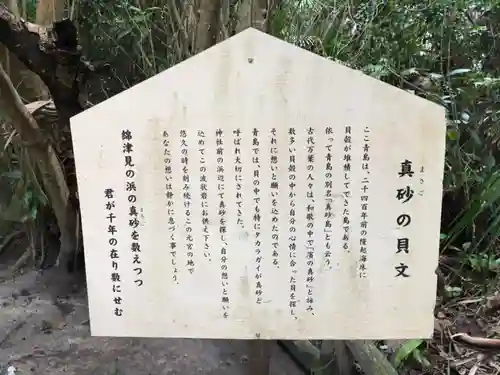 まさご
真砂の貝文
ここ青島は、二十四百年前の隆起海床に
貝殻が堆積してできた島である。
依って青島の別名『真砂島』とも云う。
古代万葉の人々は、和歌の中で『濱の真砂』と詠み、
数多い貝殻の中から自分の心情に合った貝を探し、
それに想いと願いを込めたのである。
青島では、貝の中でも特にタカラガイが真砂と
呼ばれ大切にされてきた。
神社前の浜辺にて真砂を探し、自分の想いと願いを
込めてこの波状岩にお供え下さい。
悠久の時を刻み続けるこの元宮の地で
あなたの想いは静かに息づく事でしょう。
錦津見の浜の真砂を数えつつ
まさご
君が千年の在り数にせむ